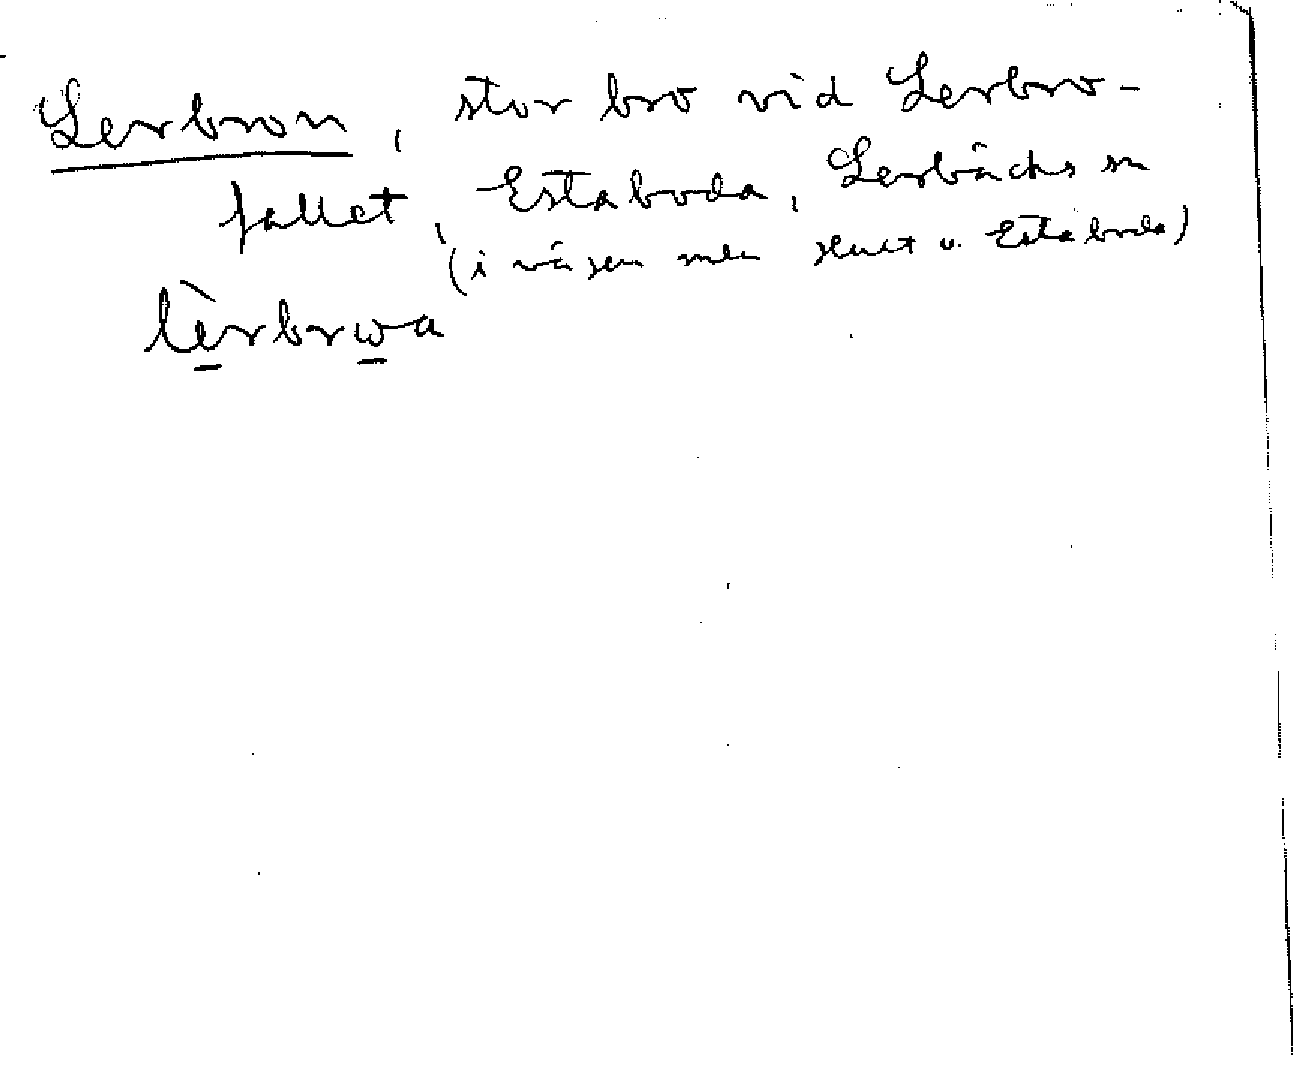 Lerbron, stor bro vid Lerbro-
fallet, Estaboda, Lerbäcks sn
(i vägen mellan slutet v. Estaboda)
lèrbrωa